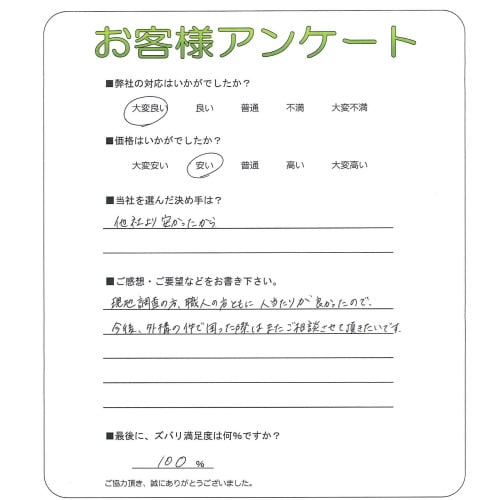 お客様アンケート
■弊社の対応はいかがでしたか？
大変良い 良い 普通 不満 大変不満
■価格はいかがでしたか？
大変安い 安い 普通 高い 大変高い
■当社を選んだ決め手は？
他社より安かったから
■ご感想・ご要望などをお書き下さい。
現地調査の方、職人の方ともに人当たりが良かったので、
今後、外構の件で困った際はまたご相談させて頂きたいです。
■最後に、ズバリ満足度は何％ですか？
100 ％
ご協力頂き、誠にありがとうございました。